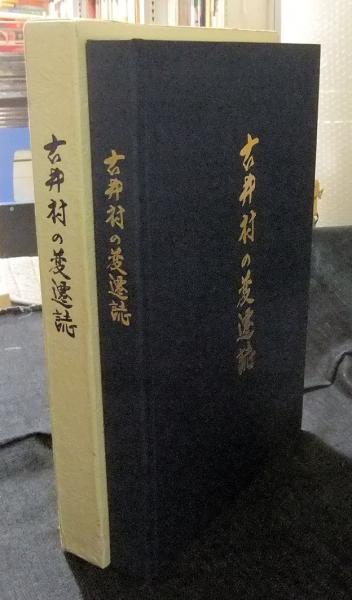 古井村の変遷誌
古井村の変遷誌
古井村の変遷誌